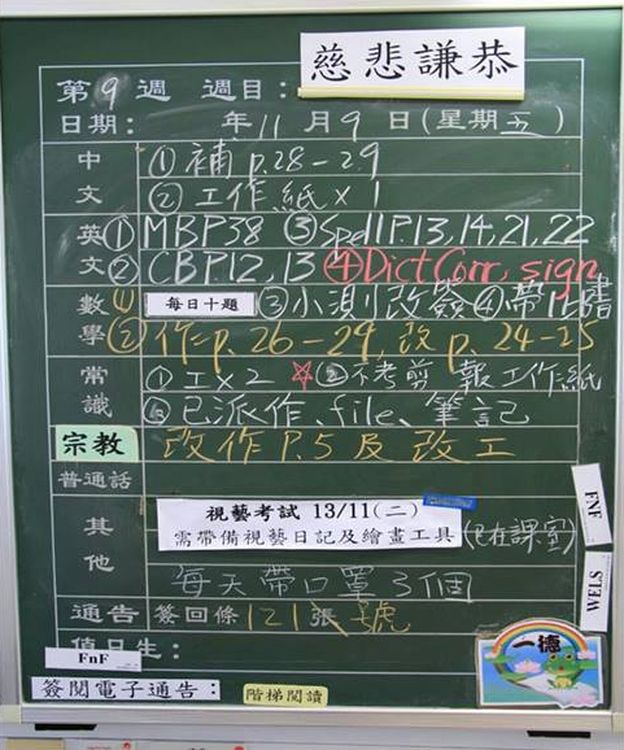 慈悲謙恭
第9週 週目：
日期： 年11月9日(星期五)
中文 ①補 p.28-29
②工作紙x1
英文 ①MBP38 ③Spell P.13,14,21,22
②CBP.12,13 ④Dict Corr, sign
數學 ① 每日十題 ③小測改簽④帶
②作=p.26-29,改p.24-25
常識 ①工x2 ☆②不考剪報工作紙
③已派作、file、筆記
宗教 改作P.5及改工
普通話
其他 視藝考試 13/11(二)
需帶備視藝日記及繪畫工具 (已在課室)
FNF
每天帶口罩3個
WELS
通告 簽回條121張 號
值日生：
FnF
一德
簽閱電子通告： 階梯閱讀